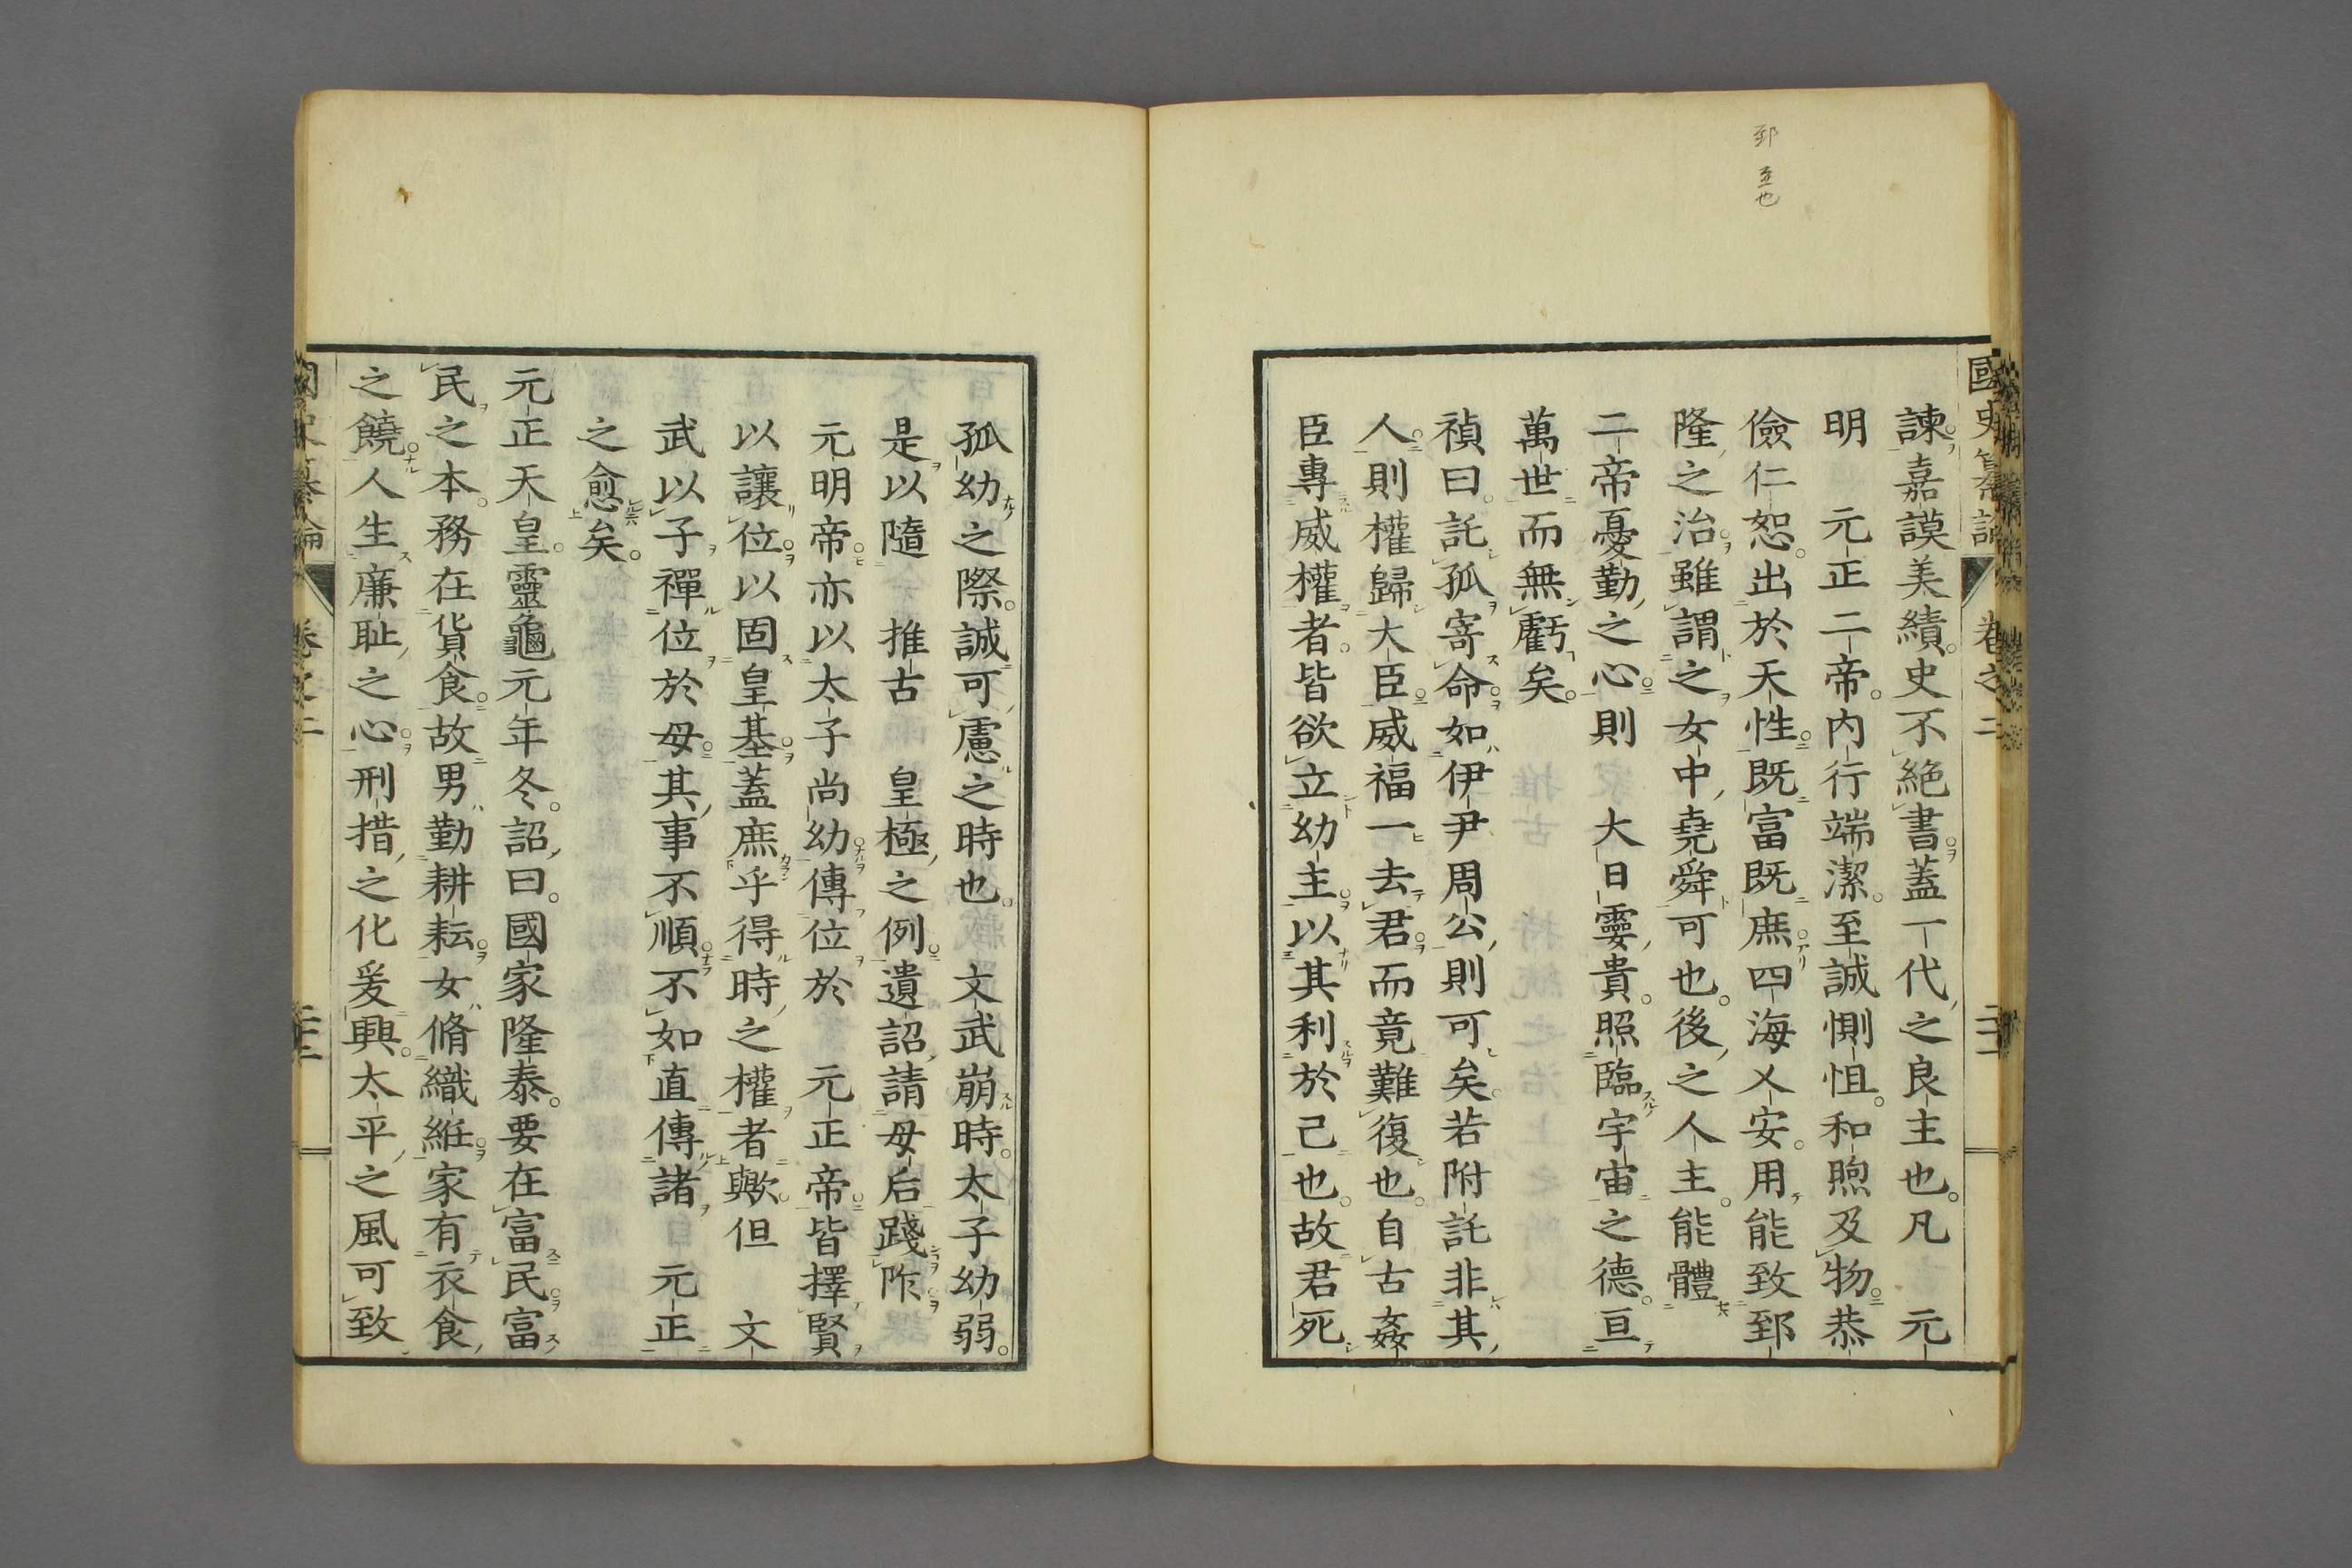 郅 至也
國史纂論 卷之二 二十一
諫嘉謨美績史不絶書蓋一代之良主也凡 元
明 元正二帝内行端潔至誠惻怛和煦及物恭
儉仁恕出於天性既富既庶四海乂安用能致郅
隆之治雖謂之女中堯舜可也後之人主能體
二帝憂勤之心則 大日孁貴照臨宇宙之德亘
萬世而無虧矣
禎曰託孤寄命如伊尹周公則可矣若附託非其
人則權歸大臣威福一去君而竟難復也自古姦
臣專威權者皆欲立幼主以其利於己也故君死
孤幼之際誠可慮之時也 文武崩時太子幼弱
是以隨 推古 皇極之例遺詔請母后踐阼
元明帝亦以太子尚幼傳位於 元正帝皆擇賢
以讓位以固皇基蓋庶乎得時之權者歟但 文
武以子禪位於母其事不順不如直傳諸 元正
之愈矣
元正天皇靈龜元年冬詔曰國家隆泰要在富民富
民之本務在貨食故男勤耕耘女脩織紝家有衣食
之饒人生廉耻之心刑措之化爰興太平之風可致
國史纂論 卷之二 二十二